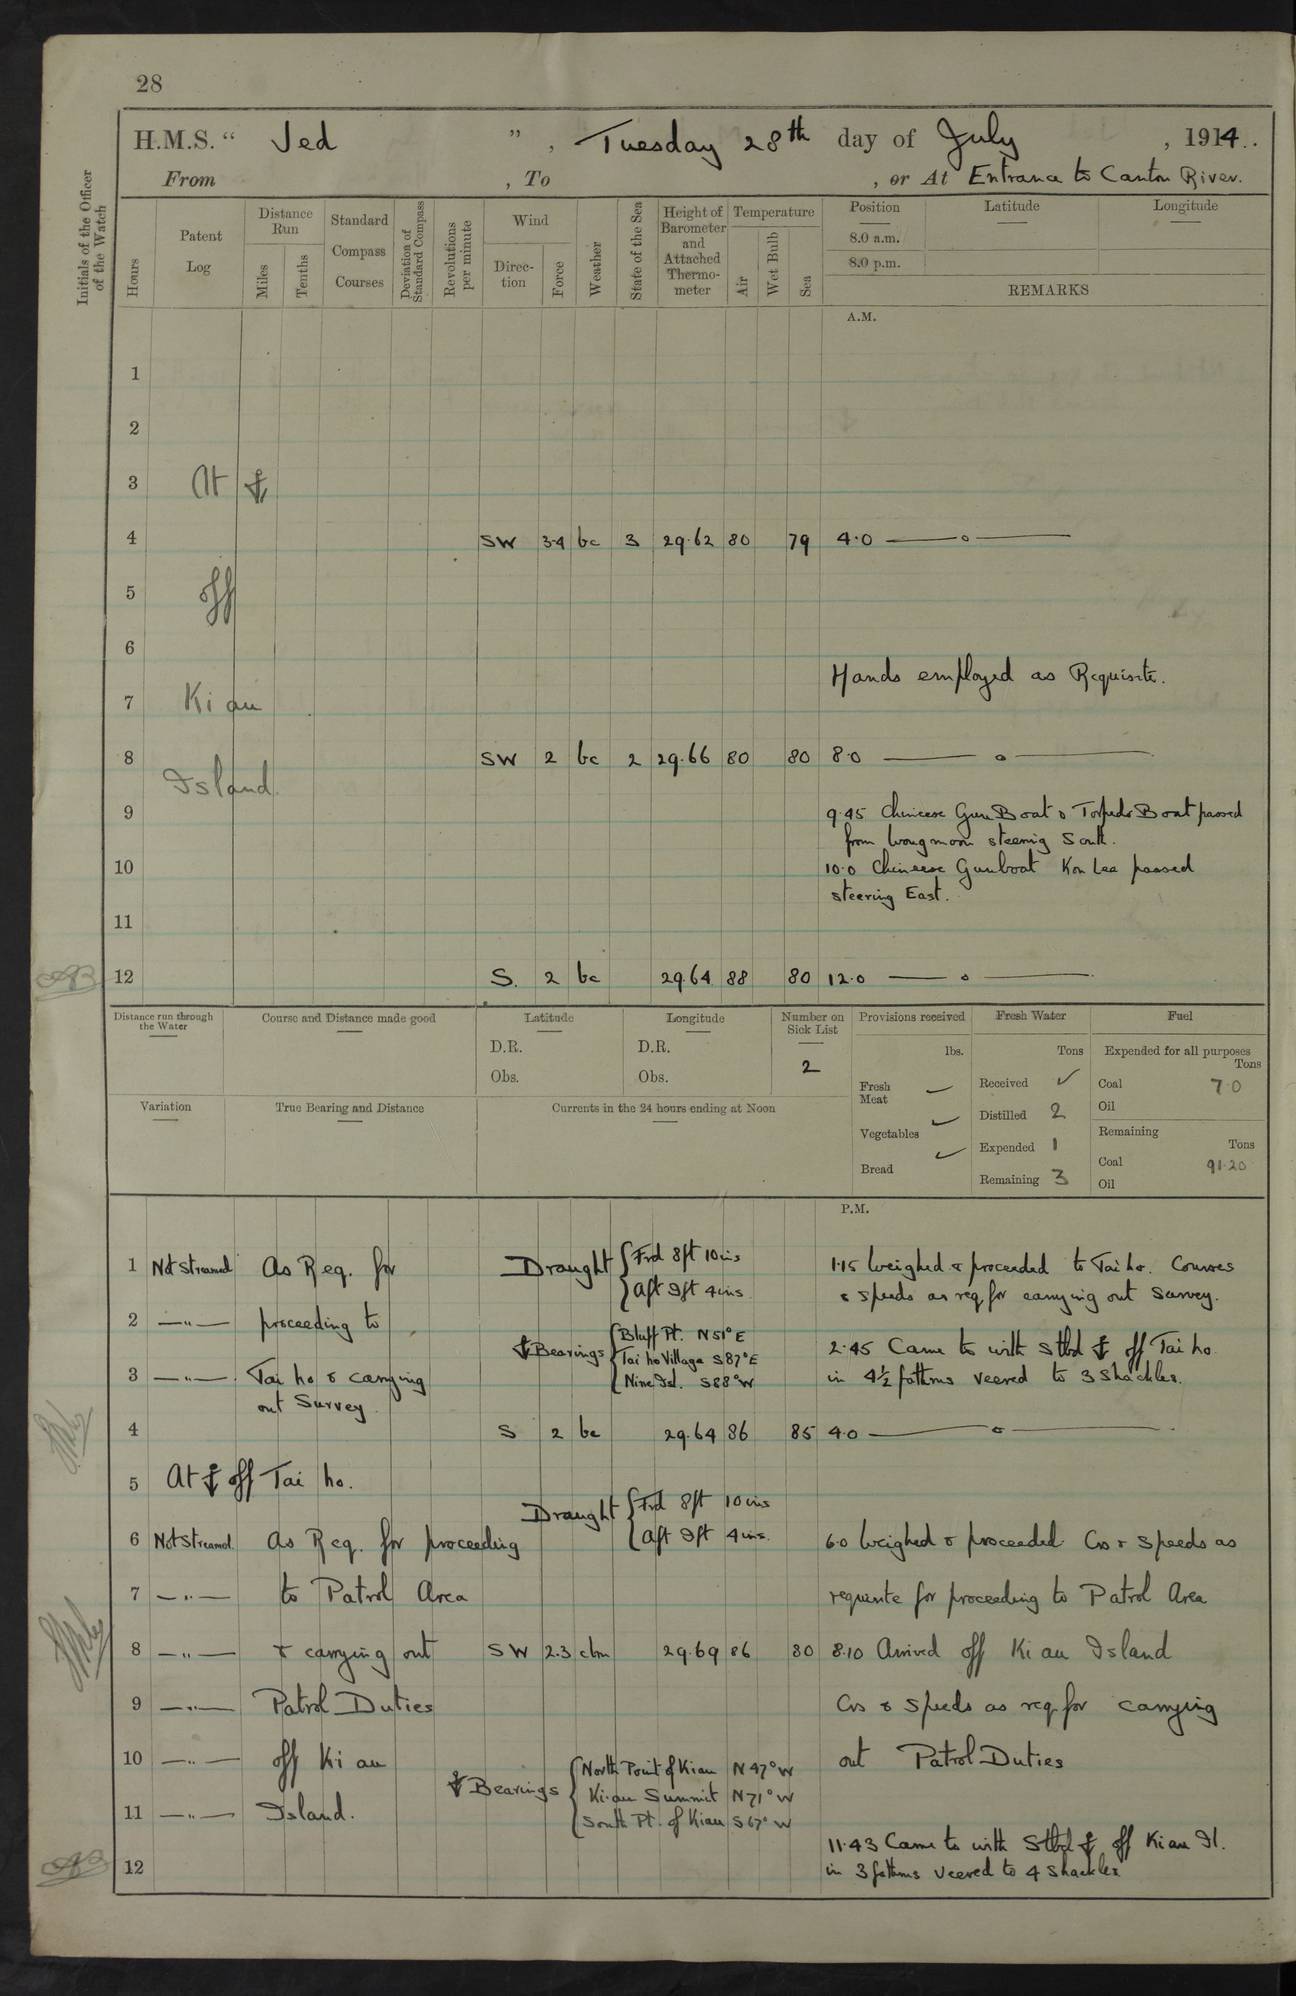 28
H.M.S. “ Jed ”, Tuesday 28th day of July, 1914.
From , To , or At Entrance to Canton River.
Initials of the Officer of the Watch
Hours
Patent Log
Distance Run
Miles
Tenths
Standard Compass Courses
Deviation of Standard Compass
Revolutions per minute
Wind
Direc-tion
Force
Weather
State of the Sea
Height of Barometer and Attached Thermo-meter
Temperature
Air
Wet Bulb
Sea
Position
8.0 a.m.
8.0 p.m.
Latitude
Longitude
REMARKS
A.M.
1
2
3 At ⚓
4 SW 3-4 bc 3 29.62 80 79 4.0 —— o ——
5 off
6
Hands employed as Requisite.
7 Ki au
8 SW 2 bc 2 29.66 80 80 8.0 —— o ——
Island.
9 9.45 Chinese Gun Boat & Torpedo Boat passed
from Wongmoon steering South.
10 10.0 Chinese Gunboat Kon Lee passed
steering East.
11
12 S. 2 bc 29.64 88 80 12.0 —— o ——
Distance run through the Water
Course and Distance made good
Latitude
D.R.
Obs.
Longitude
D.R.
Obs.
Number on Sick List
2
Provisions received
lbs.
Fresh Meat —
Vegetables
Bread
Fresh Water
Tons
Received ✓
Distilled 2
Expended 1
Remaining 3
Fuel
Expended for all purposes
Tons
Coal 7.0
Oil
Remaining
Tons
Coal 91.20
Oil
Variation
True Bearing and Distance
Currents in the 24 hours ending at Noon
P.M.
1 Not Streamed As Req. for Draught { Frd 8ft 10ins 1.15 Weighed & proceeded to Tai ho. Courses
Aft 9ft 4ins. & speeds as req. for carrying out Survey.
2 —"— proceeding to
⚓ Bearings { Bluff Pt. N51°E
Tai ho Village S87°E
Nine Isl. S88°W
2.45 Came to with Stbd ⚓ off Tai ho
3 —"— Tai ho & carrying in 4½ fathms veered to 3 shackles.
out Survey
4 S 2 bc 29.64 86 85 4.0 —— o ——
5 At ⚓ off Tai ho.
Draught { Frd 8ft 10ins
Aft 9ft 4ins.
6 Not Streamed. As Req. for proceeding 6.0 Weighed & proceeded. Cos & Speeds as
7 —"— to Patrol Area requisite for proceeding to Patrol Area
8 —"— & carrying out SW 2.3 clm 29.69 86 80 8.10 Arrived off Ki au Island
9 —"— Patrol Duties Cos & Speeds as req. for carrying
10 —"— off Ki au out Patrol Duties
⚓ Bearings { North Point of Kiau N47°W
Ki.au Summit N71°W
South Pt. of Kiau S67°W
11 —"— Island.
11.43 Came to with Stbd ⚓ off Kiau Il.
12 in 3 fathms veered to 4 Shackles